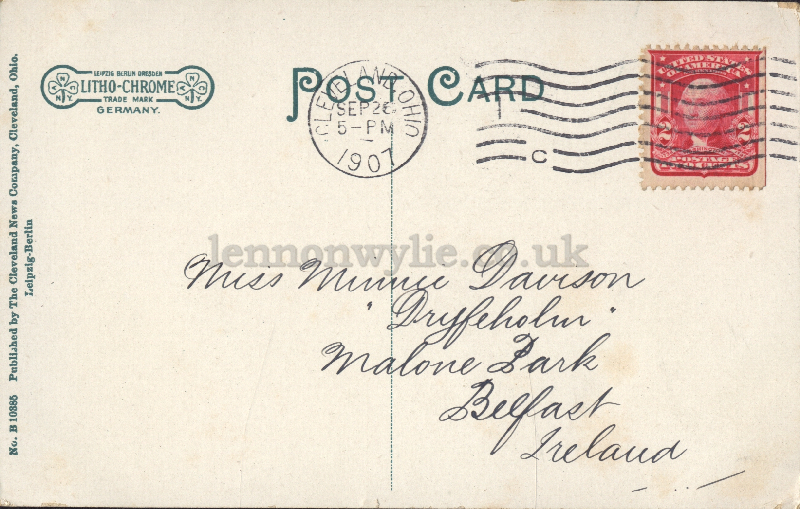 No. B 10885 Published by The Cleveland News Company, Cleveland, Ohio.
Leipzig-Berlin
LEIPZIG BERLIN DRESDEN
LITHO-CHROME
TRADE MARK
GERMANY.
N N Y.
N N Y.
POST CARD
CLEVELAND, OHIO
SEP 26
5-PM
1907
C
UNITED STATES
OF AMERICA
2 2
POSTAGE
lennonwylie.co.uk
Miss Minnie Davison
"Dryfeholm"
Malone Park
Belfast
Ireland